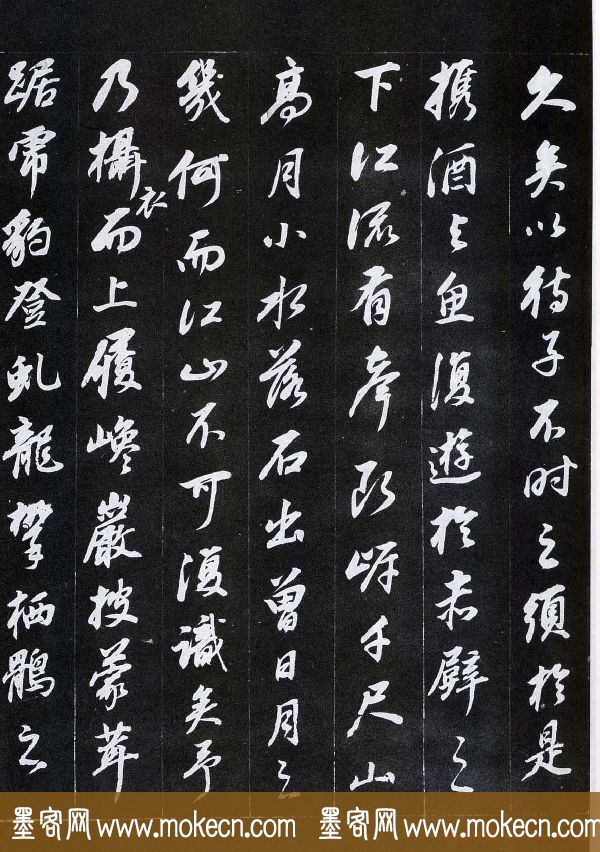 久矣以待子不时之須於是
携酒与魚復遊於赤壁之
下江流有聲斷岸千尺山
高月小水落石出曾日月之
幾何而江山不可復識矣予
乃攝衣而上履巉巖披蒙茸
踞虎豹登虬龍攀栖鶻之
墨客网 www.mokecn.com 墨客网 www.mokecn.com